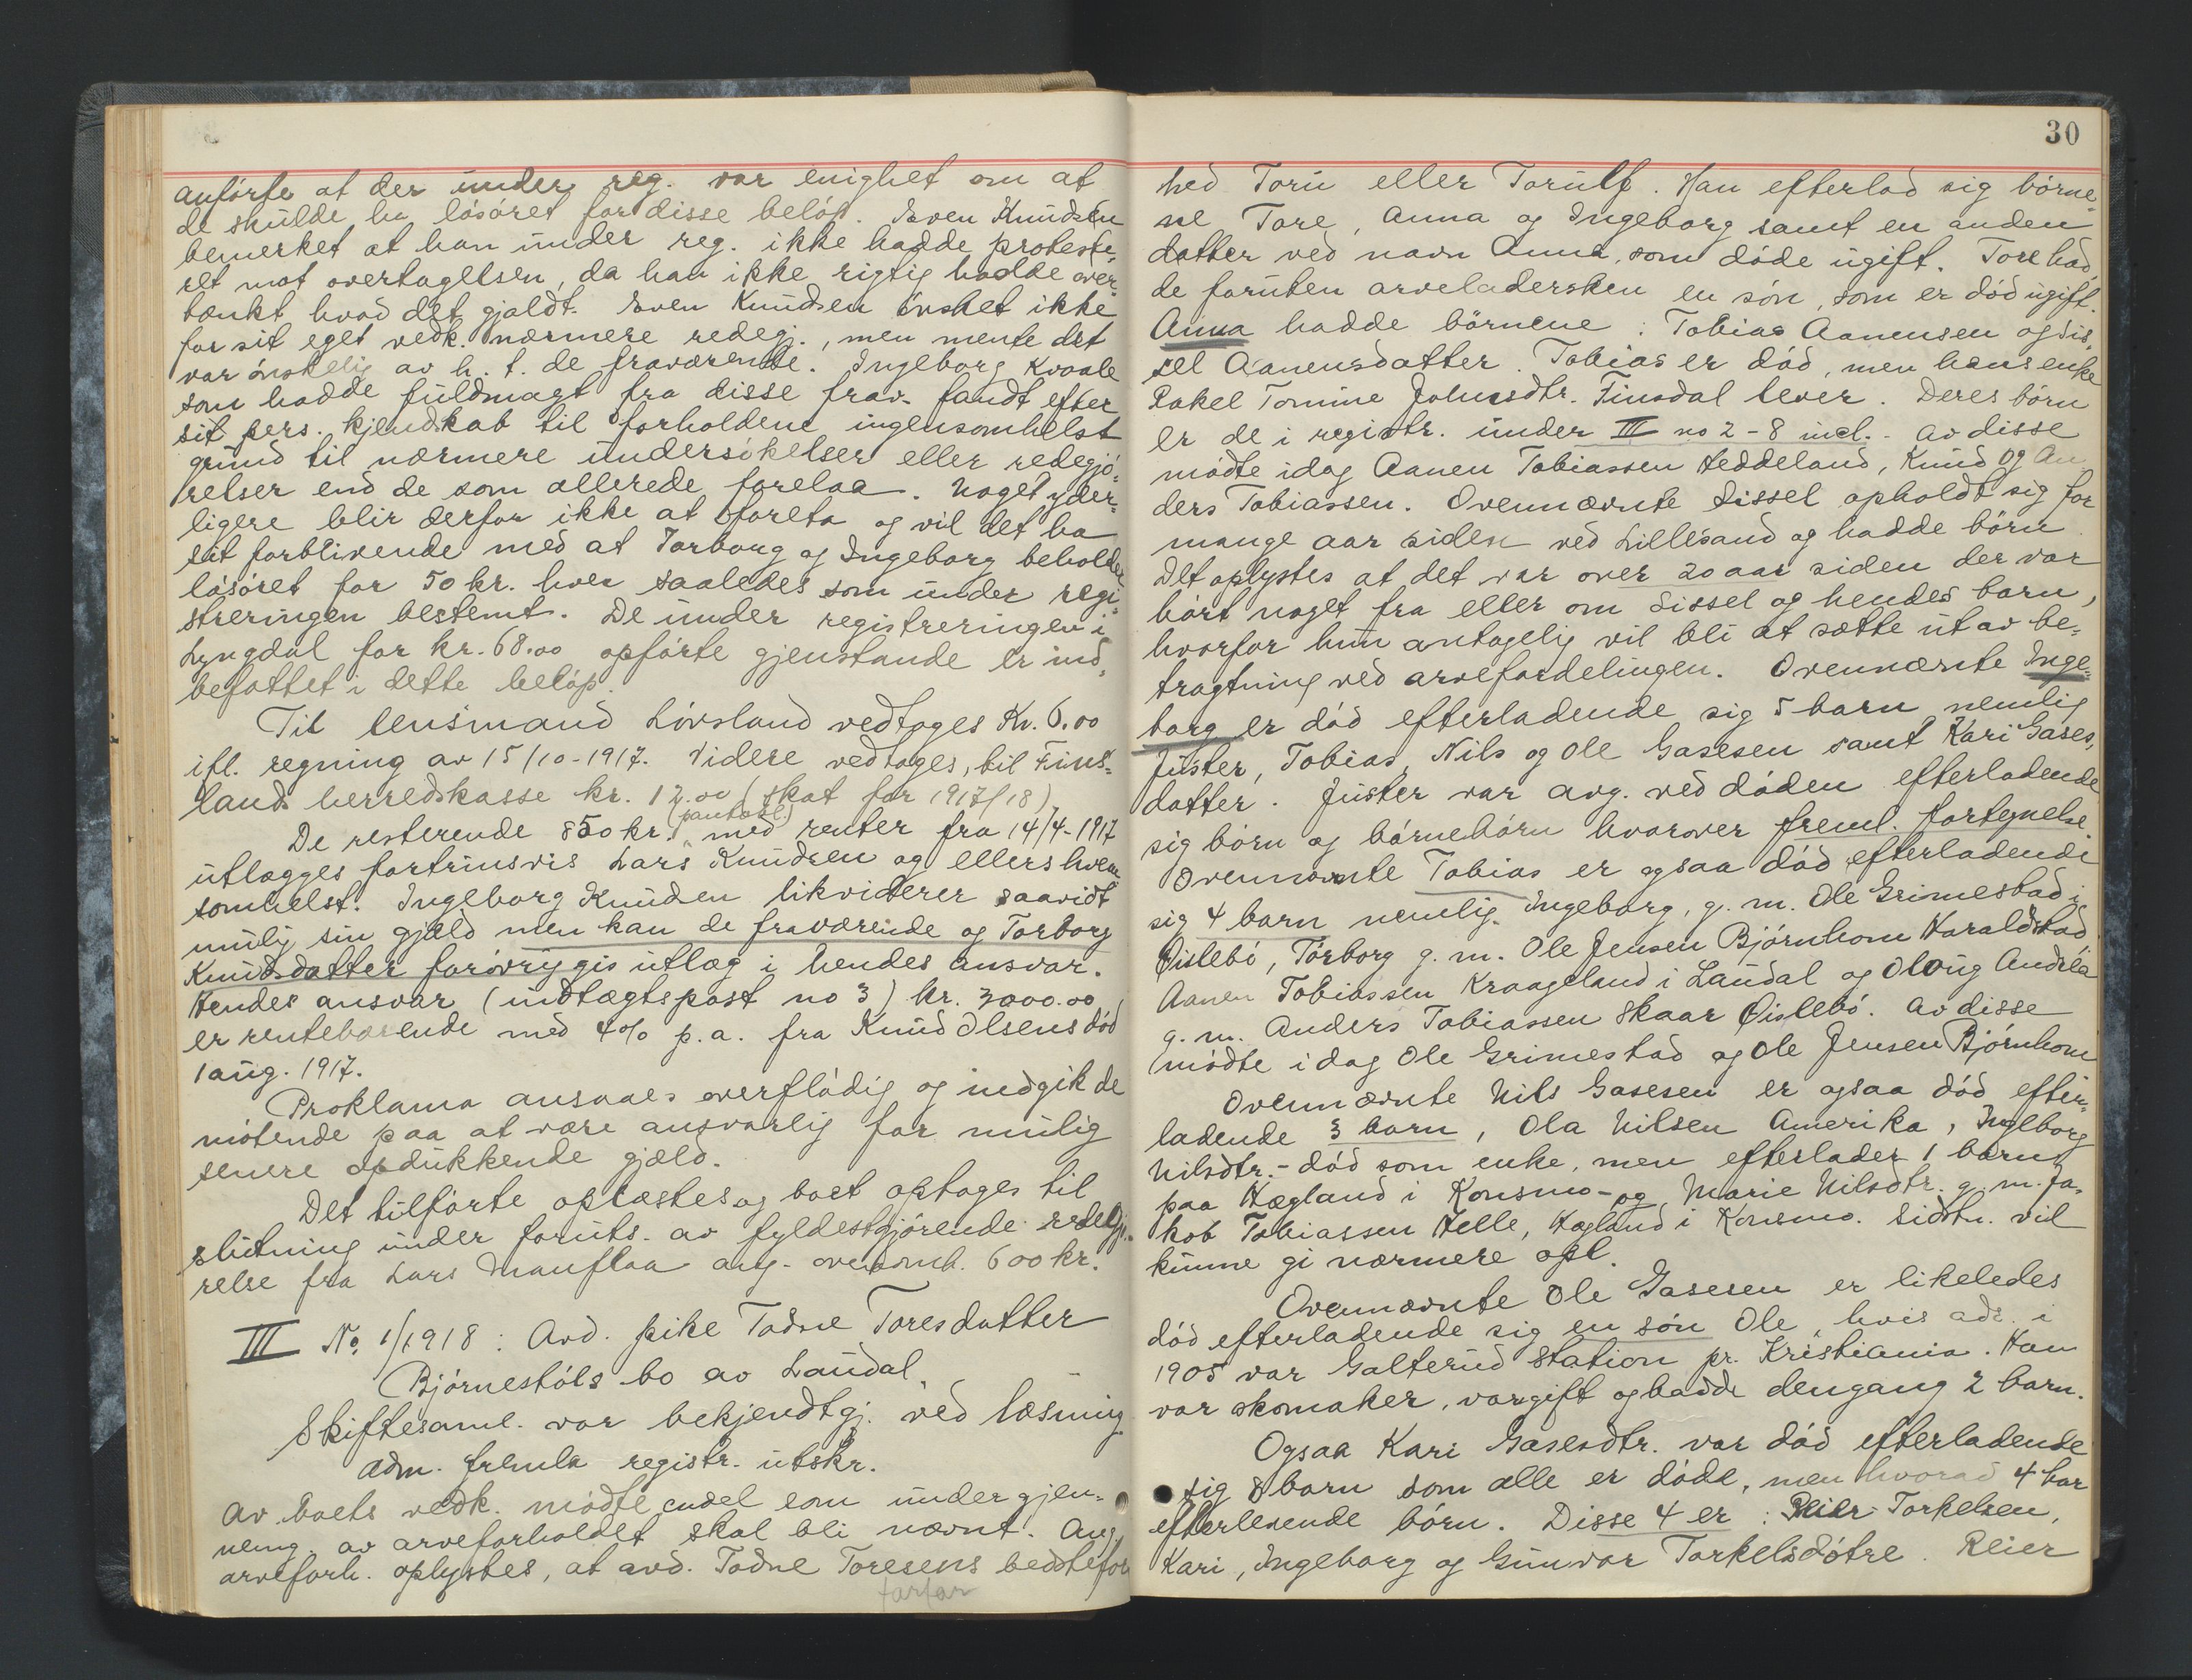 anförte at der under reg. var enighet om at
de skulde ha lösöret for disse belöp. Sven Knudsen
bemerket at han under reg. ikke hadde proteste-
ret mot overtagelsen, da han ikke rigtig hadde over-
tænkt hvad det gjaldt. Sven Knudsen önsket ikke
for sit eget vedk. nærmere redegj., men mente det
var önskelig av h. t. de fraværende. Ingeborg Kvaale
som hadde fuldmagt fra disse frav. fandt efter
sit pers. kjendskab til forholdene ingensomhelst
grund til nærmere undersökelser eller redegjö-
relser end de som allerede forelaa. Noget yder-
ligere blir derfor ikke at foreta og vil det ha
sit forblivende med at Torborg og Ingeborg beholder
lösöret for 50 kr. hver saaledes som under regi-
streringen bestemt. De under registreringen i
Lyngdal for kr. 68.00 opförte gjenstande er ind-
befattet i dette belöp.
Til lensmand Lövsland vedtages Kr. 6.00
ifl. regning av 15/10-1917. Videre vedtages, til Fins-
lands herredskasse kr. 12.00 (skat for 1917/18)
De resterende 850 kr. (pantobl.) med renter fra 14/4-1917
utlægges fortrinsvis Lars Knudsen og ellers hvem
somhelst. Ingeborg Knudsen likviderer saavidt
mulig sin gjæld men kan de fraværende og Torborg
Knudsdatter forövrig gis utlæg i hendes ansvar.
Hendes ansvar (indtægtspost no 3) kr. 3000.00
er rentebærende med 4% p.a. fra Knud Olsens död
1 aug. 1917.
Proklama ansaaes overflödig og indgik de
mötende paa at være ansvarlig for mulig
senere opdukkende gjæld.
Det tilförte oplæstes og boet optages til
slutning under foruts. av fyldestgjörende redegj-
relse fra Lars Manflaa ang. ovenomh. 600 kr.
III No 1/1918: Avd. pike Todne Toresdatter
Björnestöls bo av Laudal.
Skiftesaml. var bekjendtgj. ved læsning.
Adm. fremla registr. utskr.
Av boets vedk. mödte endel som under gjen-
nemg. av arveforholdet skal bli nævnt. Ang.
arveforh. oplystes, at avd. Todne Toresens bedstefar
farfar
30
hed Toru eller Torulf. Han efterlod sig börne-
ne Tore, Anna og Ingeborg samt en anden
datter ved navn Anna, som döde ugift. Tore had-
de foruten arveladersken en sön, som er död ugift.
Anna hadde börnene: Tobias Aanensen og Sis-
sel Aanensdatter. Tobias er död, men hans enke
Rakel Tomine Johnsdtr. Finsdal lever. Deres börn
er de i registr. under III no 2-8 incl. Av disse
mödte idag Aanen Tobiassen Heddeland, Knud og An
ders Tobiassen. Ovennævnte Sissel opholdt sig for
mange aar siden ved Lillesand og hadde börn.
Det oplystes at det var over 20 aar siden der var
hört noget fra eller om Sissel og hendes barn,
hvorfor hun antagelig vil bli at sætte ut av be-
tragtning ved arvefordelingen. Ovennævnte Inge-
borg er död efterladende sig 5 barn nemlig
Juster, Tobias, Nils og Ole Gasesen samt Kari Gases-
datter. Juster var avg. ved döden efterladende
sig börn og börnebörn hvorover freml. fortegnelse.
Ovennævnte Tobias er ogsaa död efterladende
sig 4 barn nemlig. Ingeborg, g. m. Ole Grimestad i
Öislebö, Torborg g. m. Ole Jensen Björnhom Haraldstad
Aanen Tobiassen Kraageland i Laudal og Oloug
g. m. Anders Tobiassen Skaar Öislebö. Av disse
mödte idag Ole Grimestad og Ole Jensen Björnhom
Ovennævnte Nils Gasesen er ogsaa död efter-
ladende 3 barn, Ola Nilsen Amerika, Ingeborg
Nilsdtr. - död som enke, men efterlader 1 barn
paa Hægland i Konsmo - og Marie Nilsdtr. g. m. Ja-
kob Tobiassen Helle, Hægland i Konsmo. Sidstn. vil
kunne gi nærmere opl.
Ovennævnte Ole Gasesen er likeledes
död efterladende sig en sön Ole, hvis adr. i
1905 var Galterud station pr. Kristiania. Han
var skomaker, var gift og hadde dengang 2 barn.
Ogsaa Kari Gasesdtr. var död efterladende
sig 8 barn som alle er döde, men hvorav 4 har
efterlevende börn. Disse 4 er: Reier Torkelsen,
Kari, Ingeborg og Gunvor Torkelsdötre. Reier